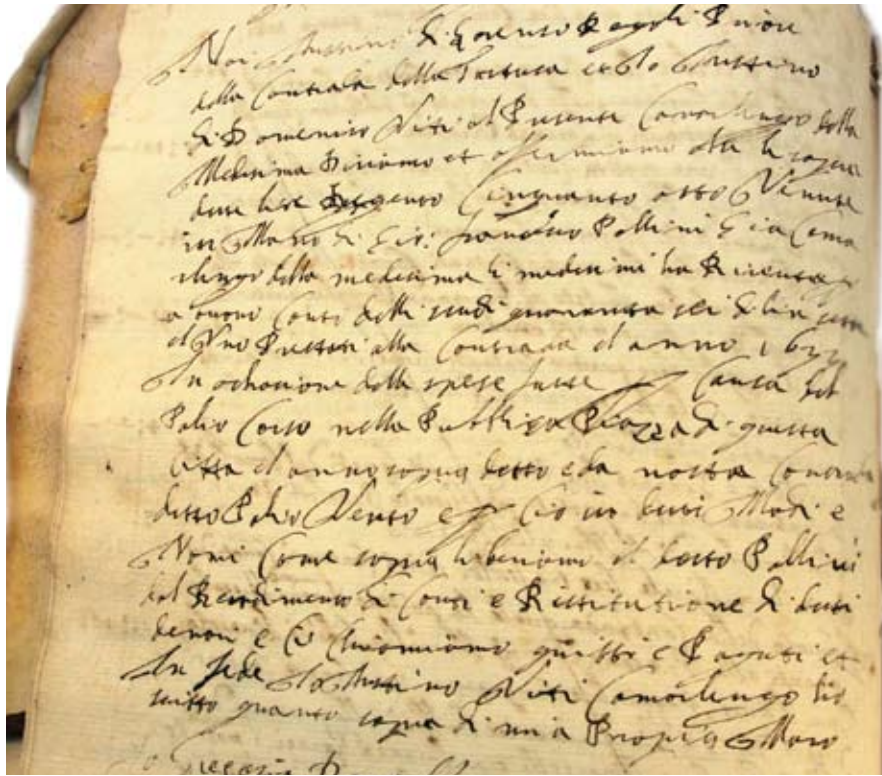 Noi Austini di Lorenso Pagoli Priore
della Contrada della Tartuca et Io Austino
di Domenico Viti al Presente Camorlengo della
Medesima Diciamo et affermiamo
dette lire dugento Cinquanta otto Venute
in Mano di Gio: Francesco Pollini Gia Camo
rlengo della medesima li medesimi ha Ricevute
a buono Conto delli scudi quaranta sei di lire sette
el uno Prestati alla Contrada el anno
In ochasione delle spese fatte per Causa del
Palio Corso nella Pubblica Piazza di questa
citta el anno sopra detto e da nostra Contrada
detto Palio Vento e per Cio in detti Modi e
Nomi Come sopra liberiamo el detto Pollini
del Rendimento di Conti e Restitutione di detti
denari e Ci Chiamiamo quitti e Pagati et
In fede Io Austino Viti Camorlengo ho
scritto quanto sopra di mia Propria Mano
Io